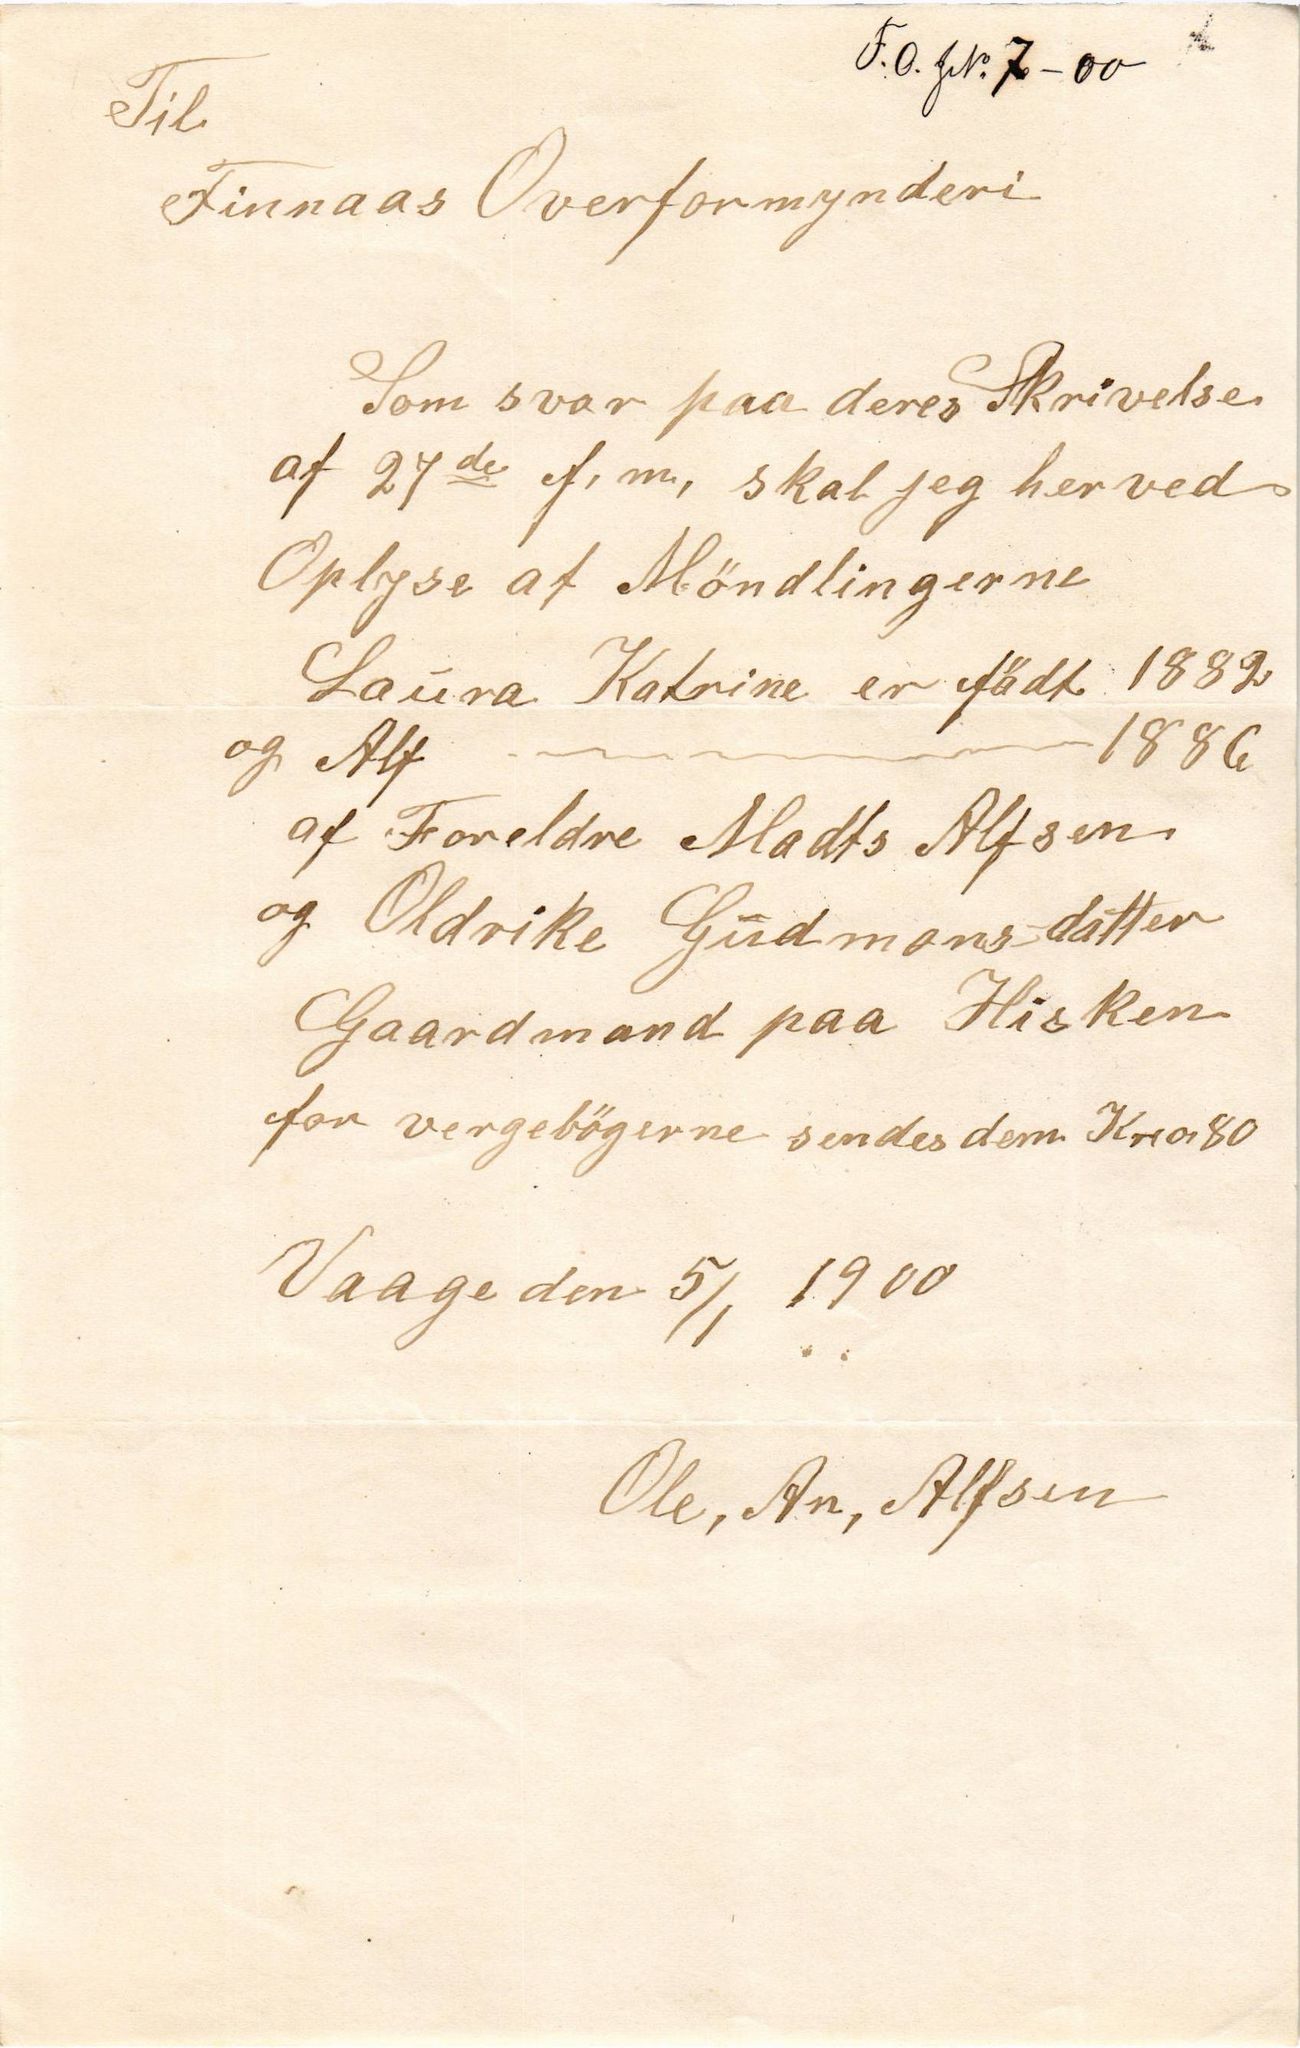 F. O. J.No. 7 - 00
Til
Finnaas Overformynderi
Som svar paa deres Skrivelse
af 27de f, m, skal jeg herved
Oplyse at Möndlingerne
Laura Katrine er födt 1882
og Alf ——— 1886
af Foreldre Madts Alfsen
og Oldrike Gudmonsdatter
Gaardmand paa Hisken
for vergebögerne sendes dem Kr 0,80
Vaage den 5/1 1900
Ole, An, Alfsen